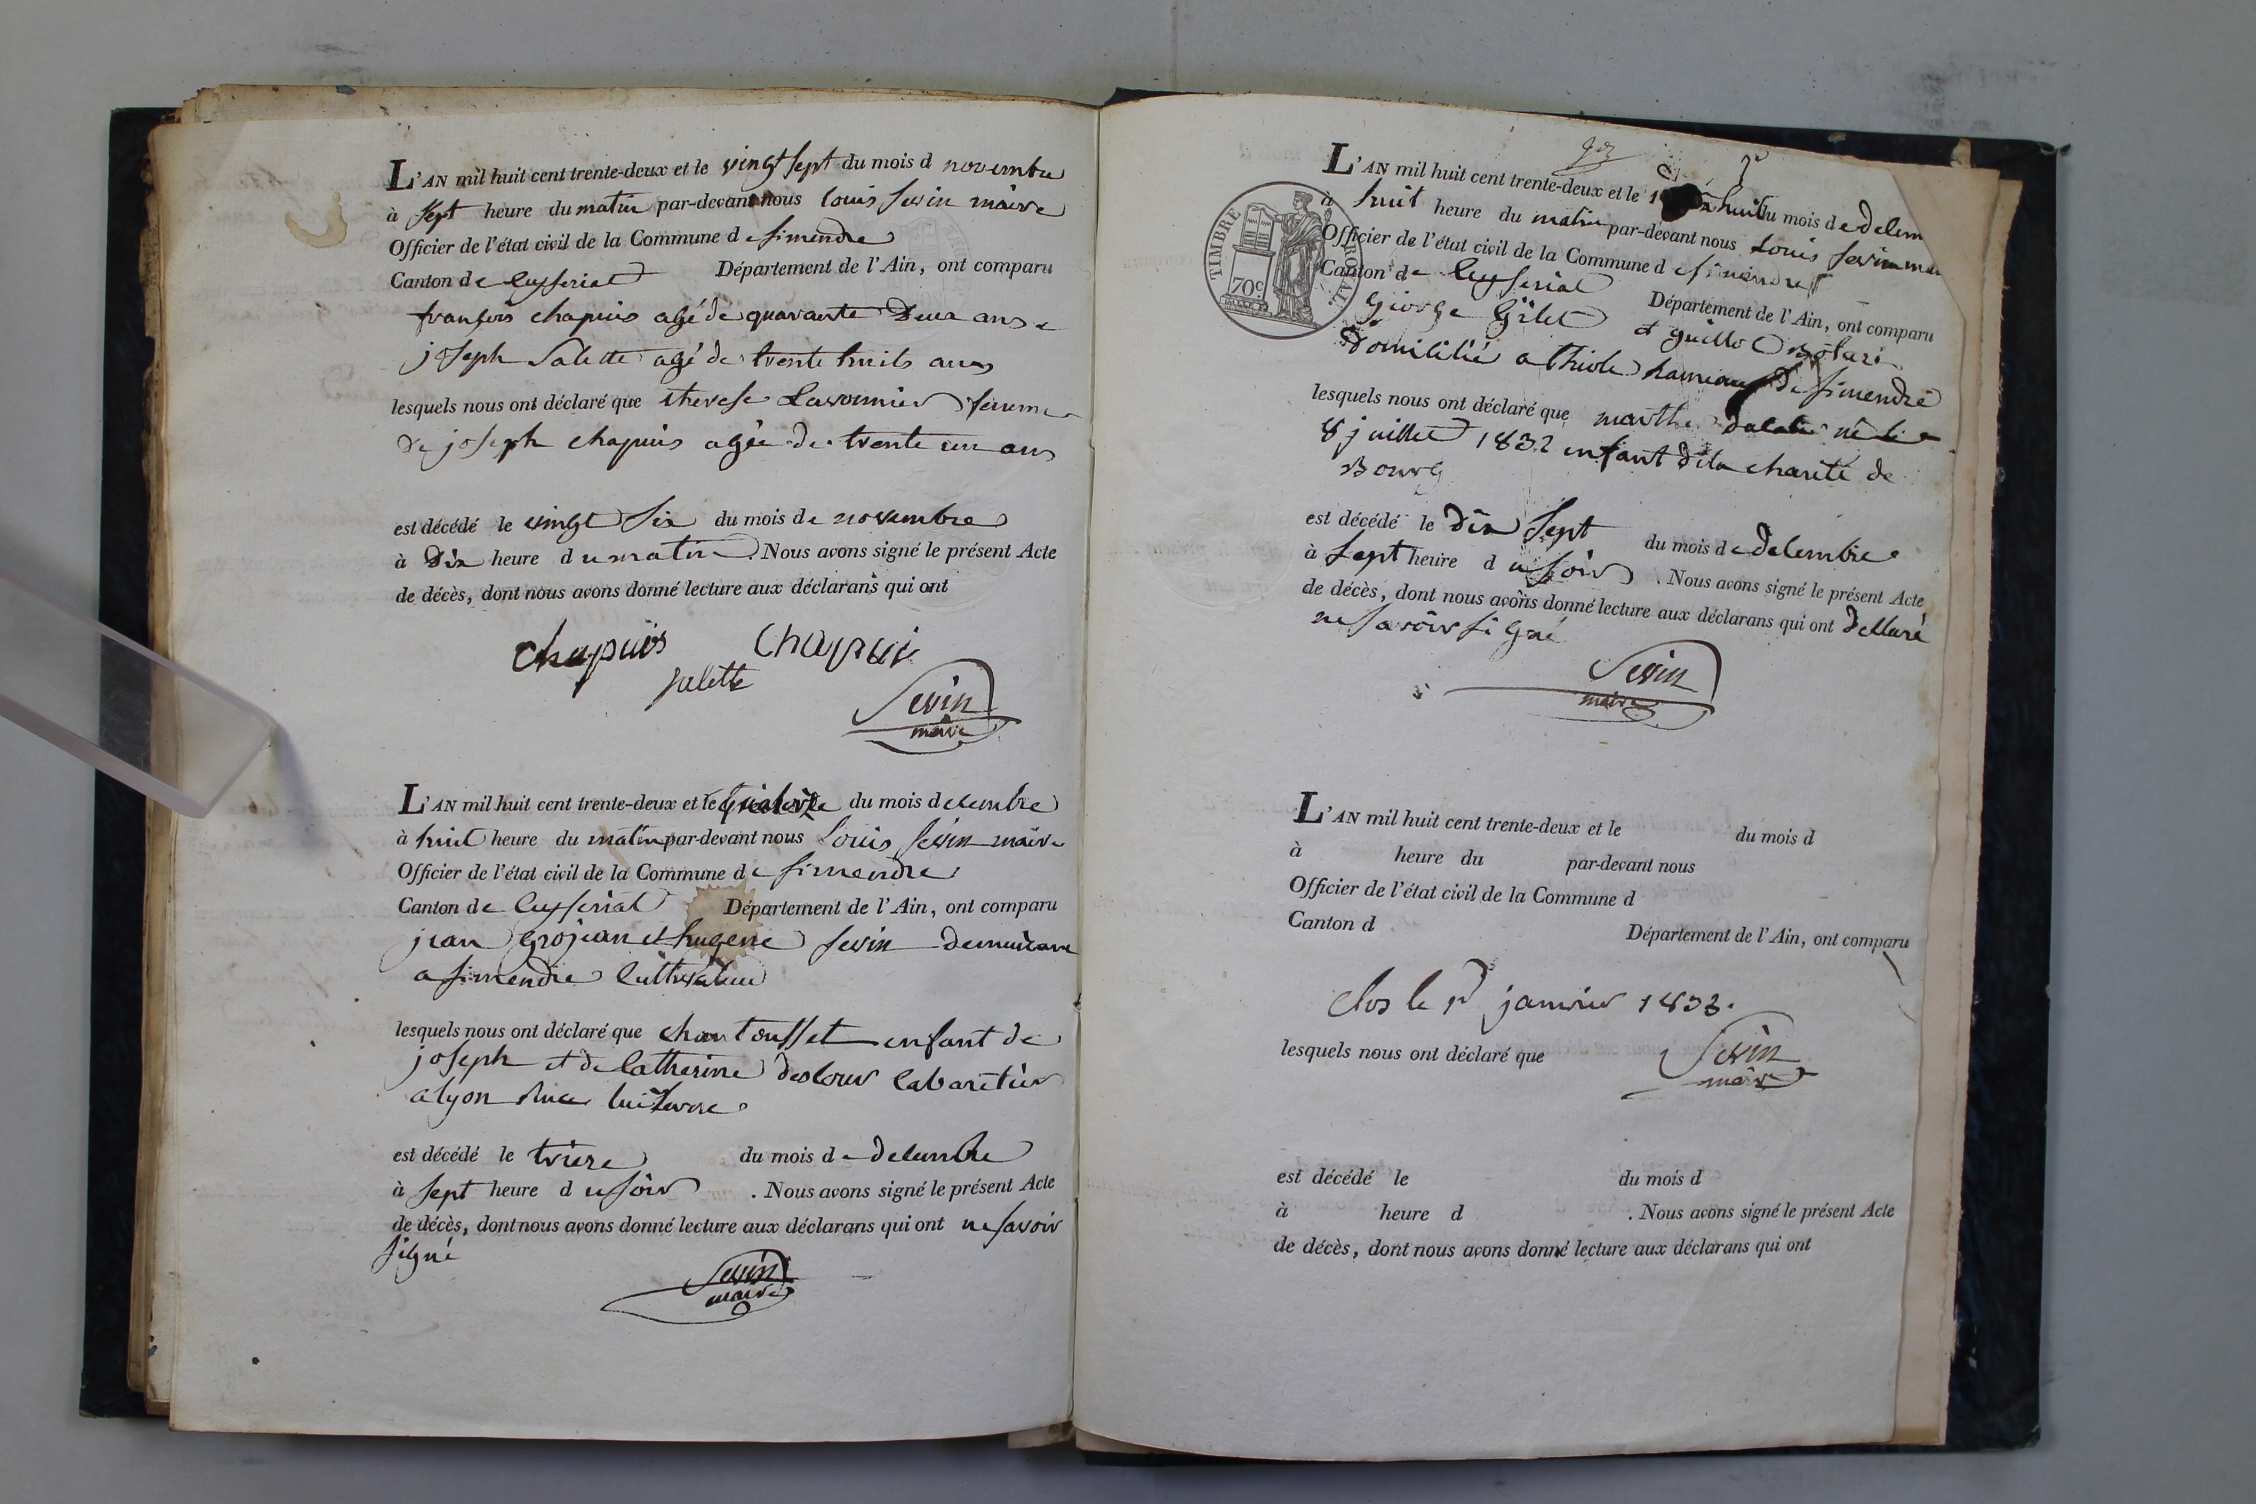 L'AN mil huit cent trente-deux et le vingt sept du mois d novembre
à sept heure du matin par-devant nous louis sevin maire
Officier de l'état civil de la Commune d e simendre
Canton de Ceyseriat Département de l'Ain, ont comparu
françois chapuis agé de quarante Deux ans e
joseph Salette agé de trente huits ans
lesquels nous ont déclaré que therese femme
De joseph chapuis agée de trente un ans
est décédé le vingt six du mois de novembre
à Dix heure du matin. Nous avons signé le présent Acte
de décès, dont nous avons donné lecture aux déclarans qui ont
chapuis Chapuis
Salette
Sevin
maire
L'AN mil huit cent trente-deux et le quatorze du mois decembre
à huit heure du matin par-devant nous Louis Sevin maire
Officier de l'état civil de la Commune d e simendre
Canton de Ceyseriat Département de l'Ain, ont comparu
jean grojean et hugene sevin demeurant
a simendre Cultivateur
lesquels nous ont déclaré que enfant de
joseph et de Catherine Cabaretier
a lyon Rue
est décédé le trieze du mois de decembre
à sept heure du soir. Nous avons signé le présent Acte
de décès, dont nous avons donné lecture aux déclarans qui ont ne savoir
signé
Sevin
maire
TIMBRE ROYAL.
70c
L'AN mil huit cent trente-deux et le huit du mois de decem
à huit heure du matin par-devant nous Louis Sevin mai
Officier de l'état civil de la Commune d e simendre
Canton de Ceyseriat Département de l'Ain, ont comparu
George Gilet et
Domicilié a thiole hameau de simendre
lesquels nous ont déclaré que marthe né le
8 juillet 1832 enfant de la charité de
Bourg
est décédé le Dix Sept du mois de decembre
à Sept heure du soir. Nous avons signé le présent Acte
de décès, dont nous avons donné lecture aux déclarans qui ont declaré
ne savoir signé
Sevin
maire
L'AN mil huit cent trente-deux et le du mois d
à heure du par-devant nous
Officier de l'état civil de la Commune d
Canton d Département de l'Ain, ont comparu
Clos le 1r janvier 1833.
lesquels nous ont déclaré que
Sevin
maire
est décédé le du mois d
à heure d . Nous avons signé le présent Acte
de décès, dont nous avons donné lecture aux déclarans qui ont